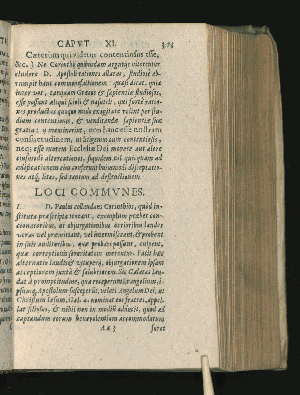 CAPVT XI.
Cæterùm qui videtur contentiosus esse,
&c. ] Ne Corinthij quibusdam argutijs niterentur
eludere D. Apostoli rationes allatas, studiosè ab
rumpit hanc commonefactionem: quasi dicat, qui
inter vos, tanquam Græcus & sapientiæ studiosus,
esse possunt aliqui scioli & nasutuli, qui fortè ratio-
nes productas quoquo modo exagitare velint per stu-
dium contentionis, & venditandæ sapientiæ suæ
gratia: ij meminerint, non hanc esse nostram
consuetudinem, ut litigemus cum contentiosis,
neq; esse morem Ecclesiæ Dei movere aut alere
eiusmodi altercationes, siquidem nil quicquam ad
ædificationem eius conferunt huiusmodi disceptatio-
nes &c, sed tantum ad destructionem.
LOCI COMMVNES.
I. D. Paulus collaudans Corinthios, quod in-
stituta præscripta teneant, exemplum præbet con-
cionatoribus, ut obiurgationibus acrioribus laudes
veras vel præmittant, vel intermisceant, & probent
in suis auditoribus, quæ probari possunt, culpent,
quæ correptionis severitatem merentur. Facit hæc
alternatio laudis & vituperij, obiurgationem ipsam
acceptiorem iuxta & salubriorem. Sic Galatas lau-
dat à promptitudine, qua receperunt
ipsumq; Apostolum susceperũt, veluti Angelum Dei, ut
Christum Iesum, Gal. 4. nominat eos fratres, appel-
lat filiolos, & nihil non in medium adhibuit, quod ad
captandam eorum benevolentiam accommodatum
Aa 3 foret